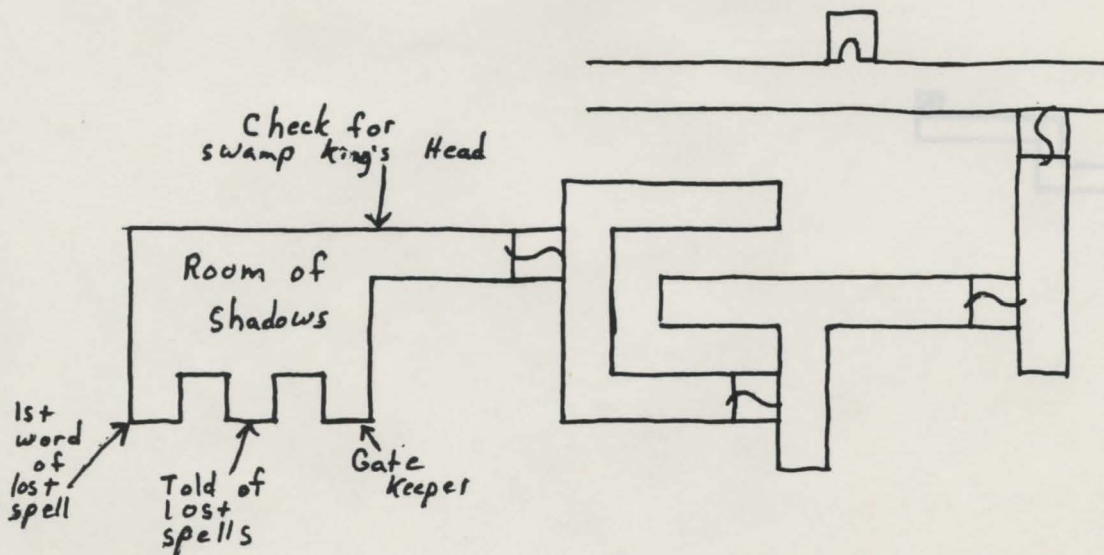 Check for
swamp king's Head
Room of
Shadows
1st
word
of
lost
spell
Told of
lost
spells
Gate
keeper